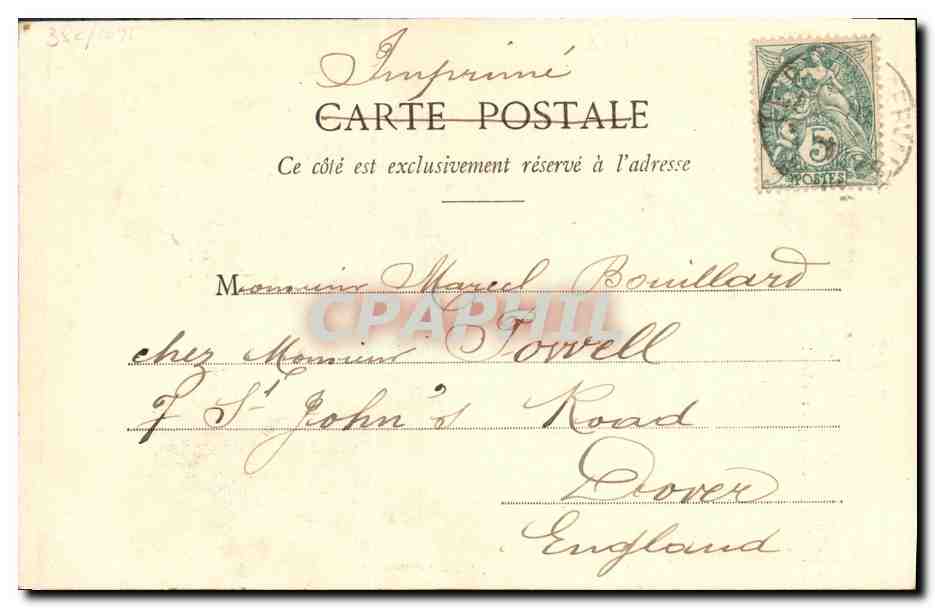 Imprimé
CARTE POSTALE
Ce côté est exclusivement réservé à l'adresse
5
POSTES
Monsieur Marcel Bouillard
CPAPHIL
chez Monsieur Powell
7 St John's Road
Dover
England